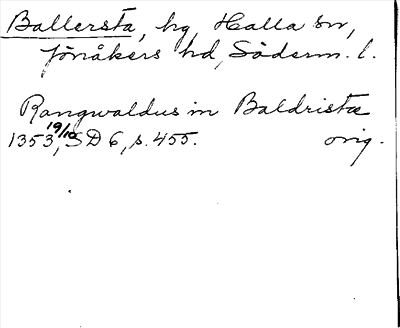 Ballersta, hg, Halla sn,
Jönåkers hd, Söderm. l.
Rangwaldus in Baldristæ
1353 19/10, SD 6, s. 455. orig.